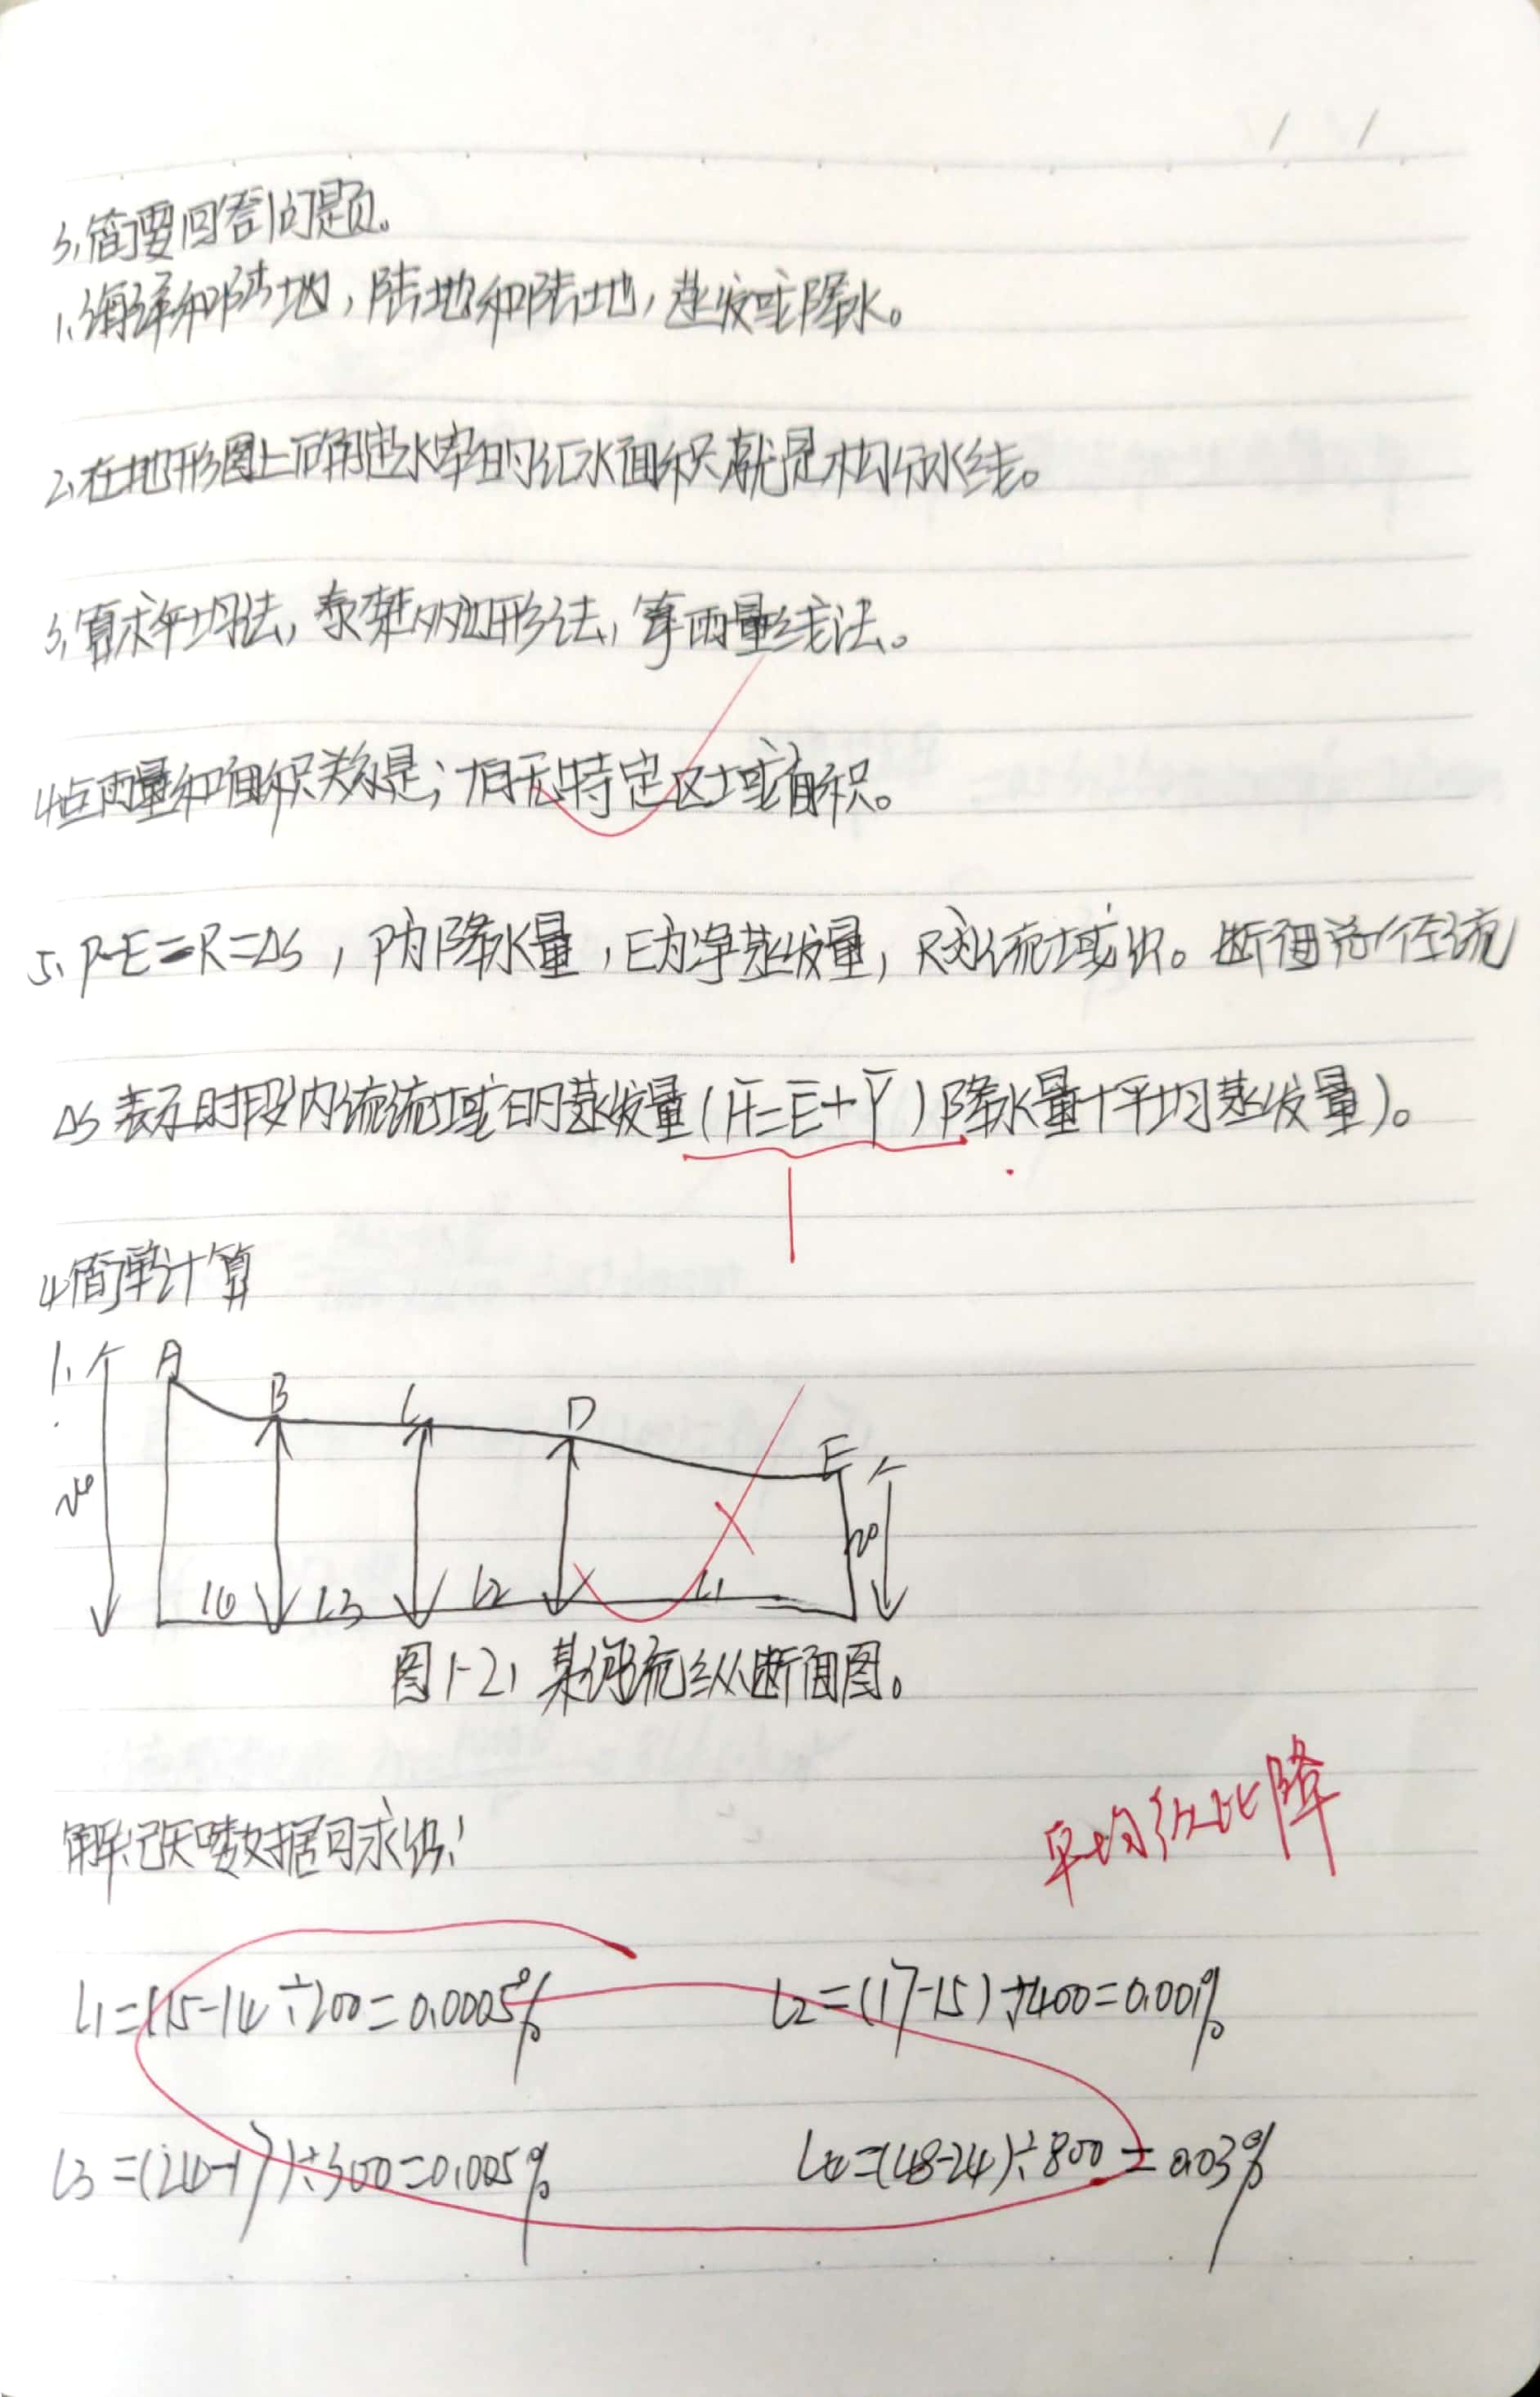 / /
3、简要回答问题。
1、海洋和陆地，陆地和陆地，蒸发或降水。
2、在地形图上 水库的汇水面积就是 分水线。
3、算术平均法，泰森多边形法，等雨量线法。
4、点雨量和面积关系是；有无特定区域面积。
5、P-E=R=ΔS，P为降水量，E为净蒸发量，R为流域出。断面总径流
ΔS 表示时段内流流域的蒸发量(H̅=E̅+Y̅)降水量+平均蒸发量)。
4、简单计算
1、 A B C D E
20
L4 L3 L2 L1
图1-2，某河流纵断面图。
平均纵比降
解：已知数据可求得：
L1=(15-14÷200=0.0005% L2=(17-15)÷400=0.001%
L3=(24-17)÷300=0.005% L4=(48-24)÷800=0.03%